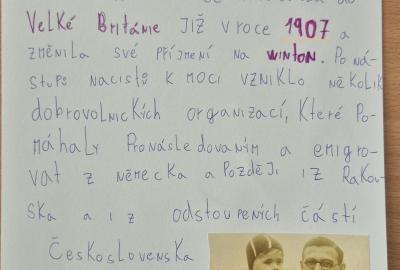 Velké Británie již v roce 1907 a
změnila své příjmení na Winton. Po ná-
stupu nacistů k moci vzniklo několik
dobrovolnických organizací, které po-
máhaly pronásledovaným a emigro-
vat z německa a později i z Rakou-
ska a i z odstoupených částí
Československa